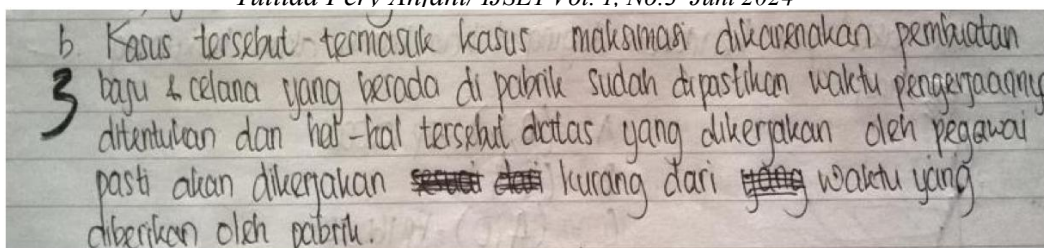 Tullida Fery Anfani/ IJSET Vol. 1, No.3 Juni 2024
b. Kasus tersebut termasuk kasus maksimasi dikarenakan pembuatan
3 baju & celana yang berada di pabrik sudah dipastikan waktu pengerjaannya
ditentukan dan hal-hal tersebut diatas yang dikerjakan oleh pegawai
pasti akan dikerjakan sesuai dari kurang dari yang waktu yang
diberikan oleh pabrik.